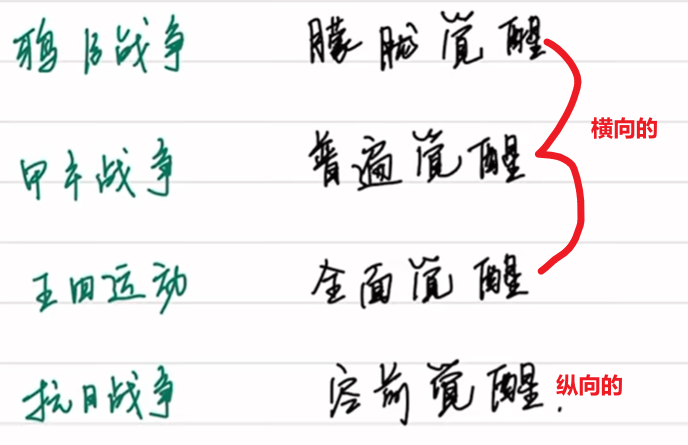 鸦片战争 朦胧觉醒
横向的
甲午战争 普遍觉醒
五四运动 全面觉醒
抗日战争 空前觉醒. 纵向的